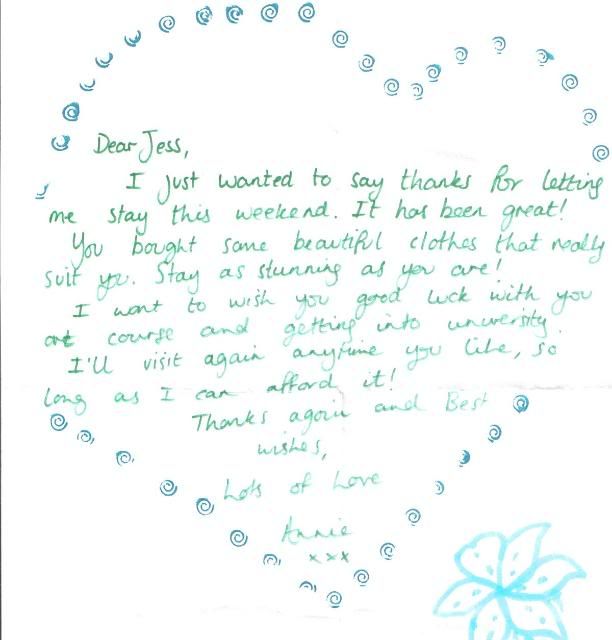 Dear Jess,
I just wanted to say thanks for letting
me stay this weekend. It has been great!
You bought some beautiful clothes that really
suit you. Stay as stunning as you are!
I want to wish you good luck with you
art course and getting into university.
I'll visit again anytime you like, so
long as I can afford it!
Thanks again and Best
wishes,
Lots of Love
Annie
xxx